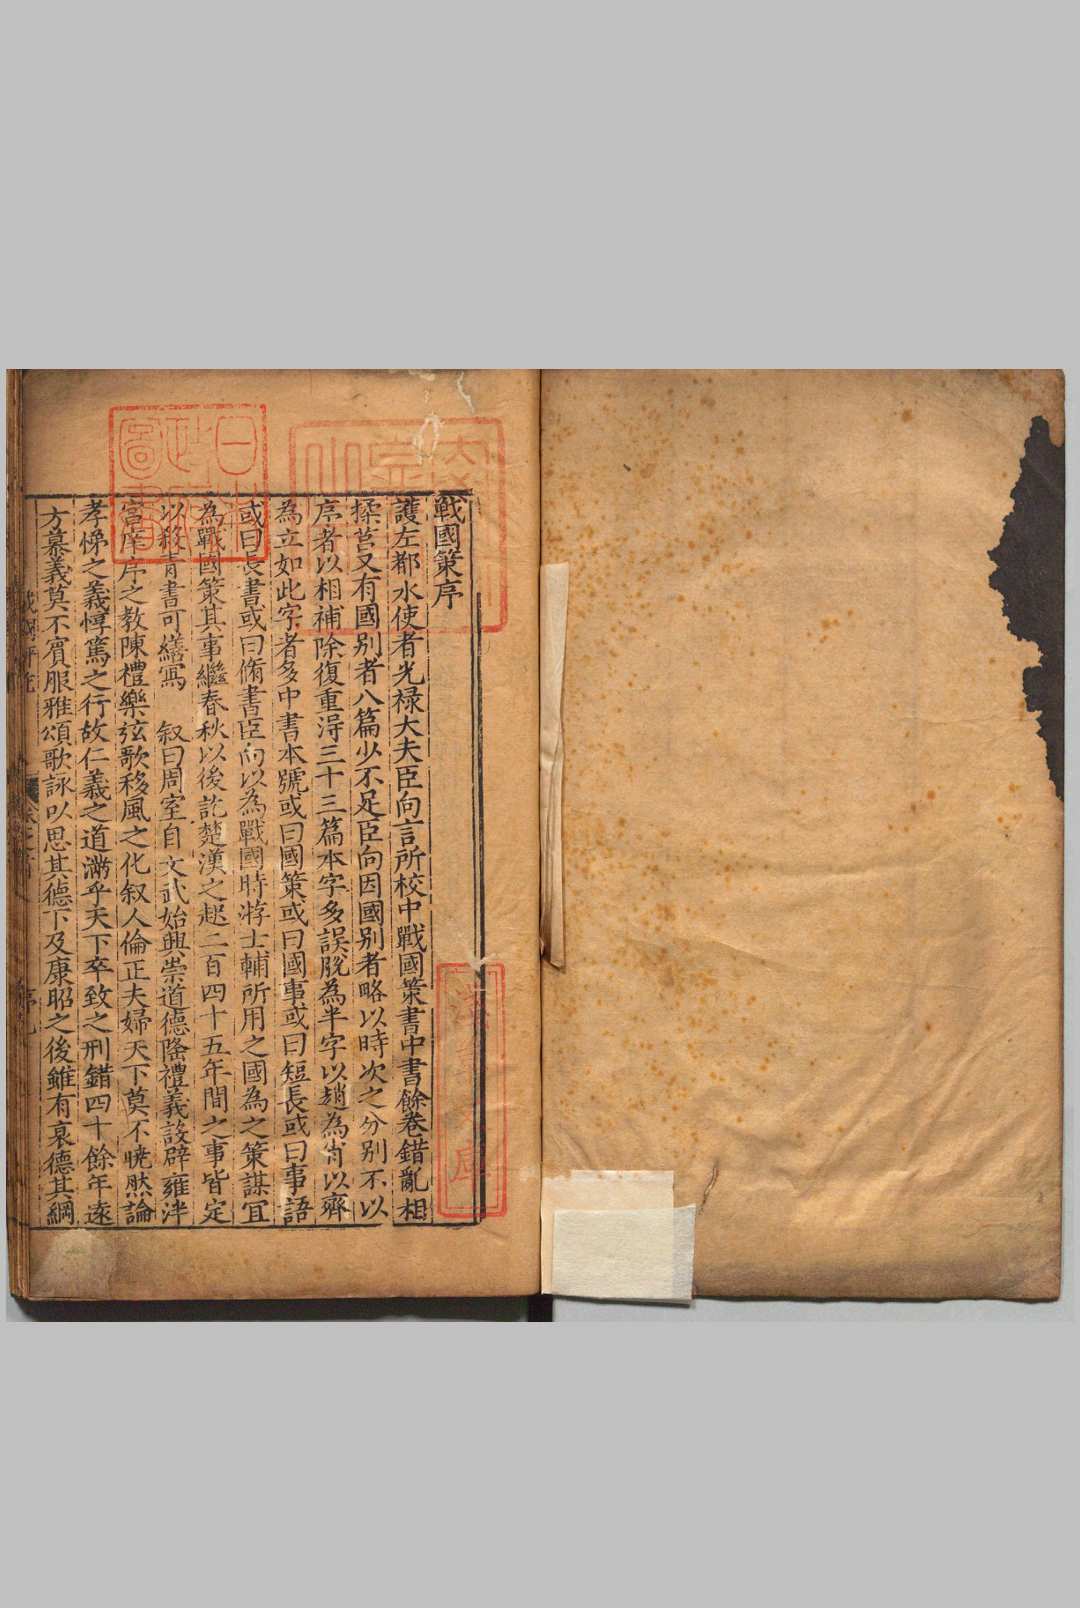 戰國策序
護左都水使者光禄大夫臣向言所校中戰國策書中書餘卷錯亂相
揉莒又有國别者八篇少不足臣向因國别者略以時次之分别不以
序者以相補除復重淂三十三篇本字多誤脱為半字以趙為肖以齊
為立如此字者多中書本號或曰國策或曰國事或曰短長或曰事語
或曰長書或曰脩書臣向以為戰國時游士輔所用之國為之策謀冝
為戰國策其事繼春秋以後訖楚漢之起二百四十五年間之事皆定
以殺青書可繕寫 叙曰周室自文武始興崇道德隆禮義設辟雍泮
宫庠序之教陳禮樂弦歌移風之化叙人倫正夫婦天下莫不曉然論
孝悌之義惇篤之行故仁義之道滿乎天下卒致之刑錯四十餘年逺
方慕義莫不賓服雅頌歌詠以思其德下及康昭之後雖有衰德其綱